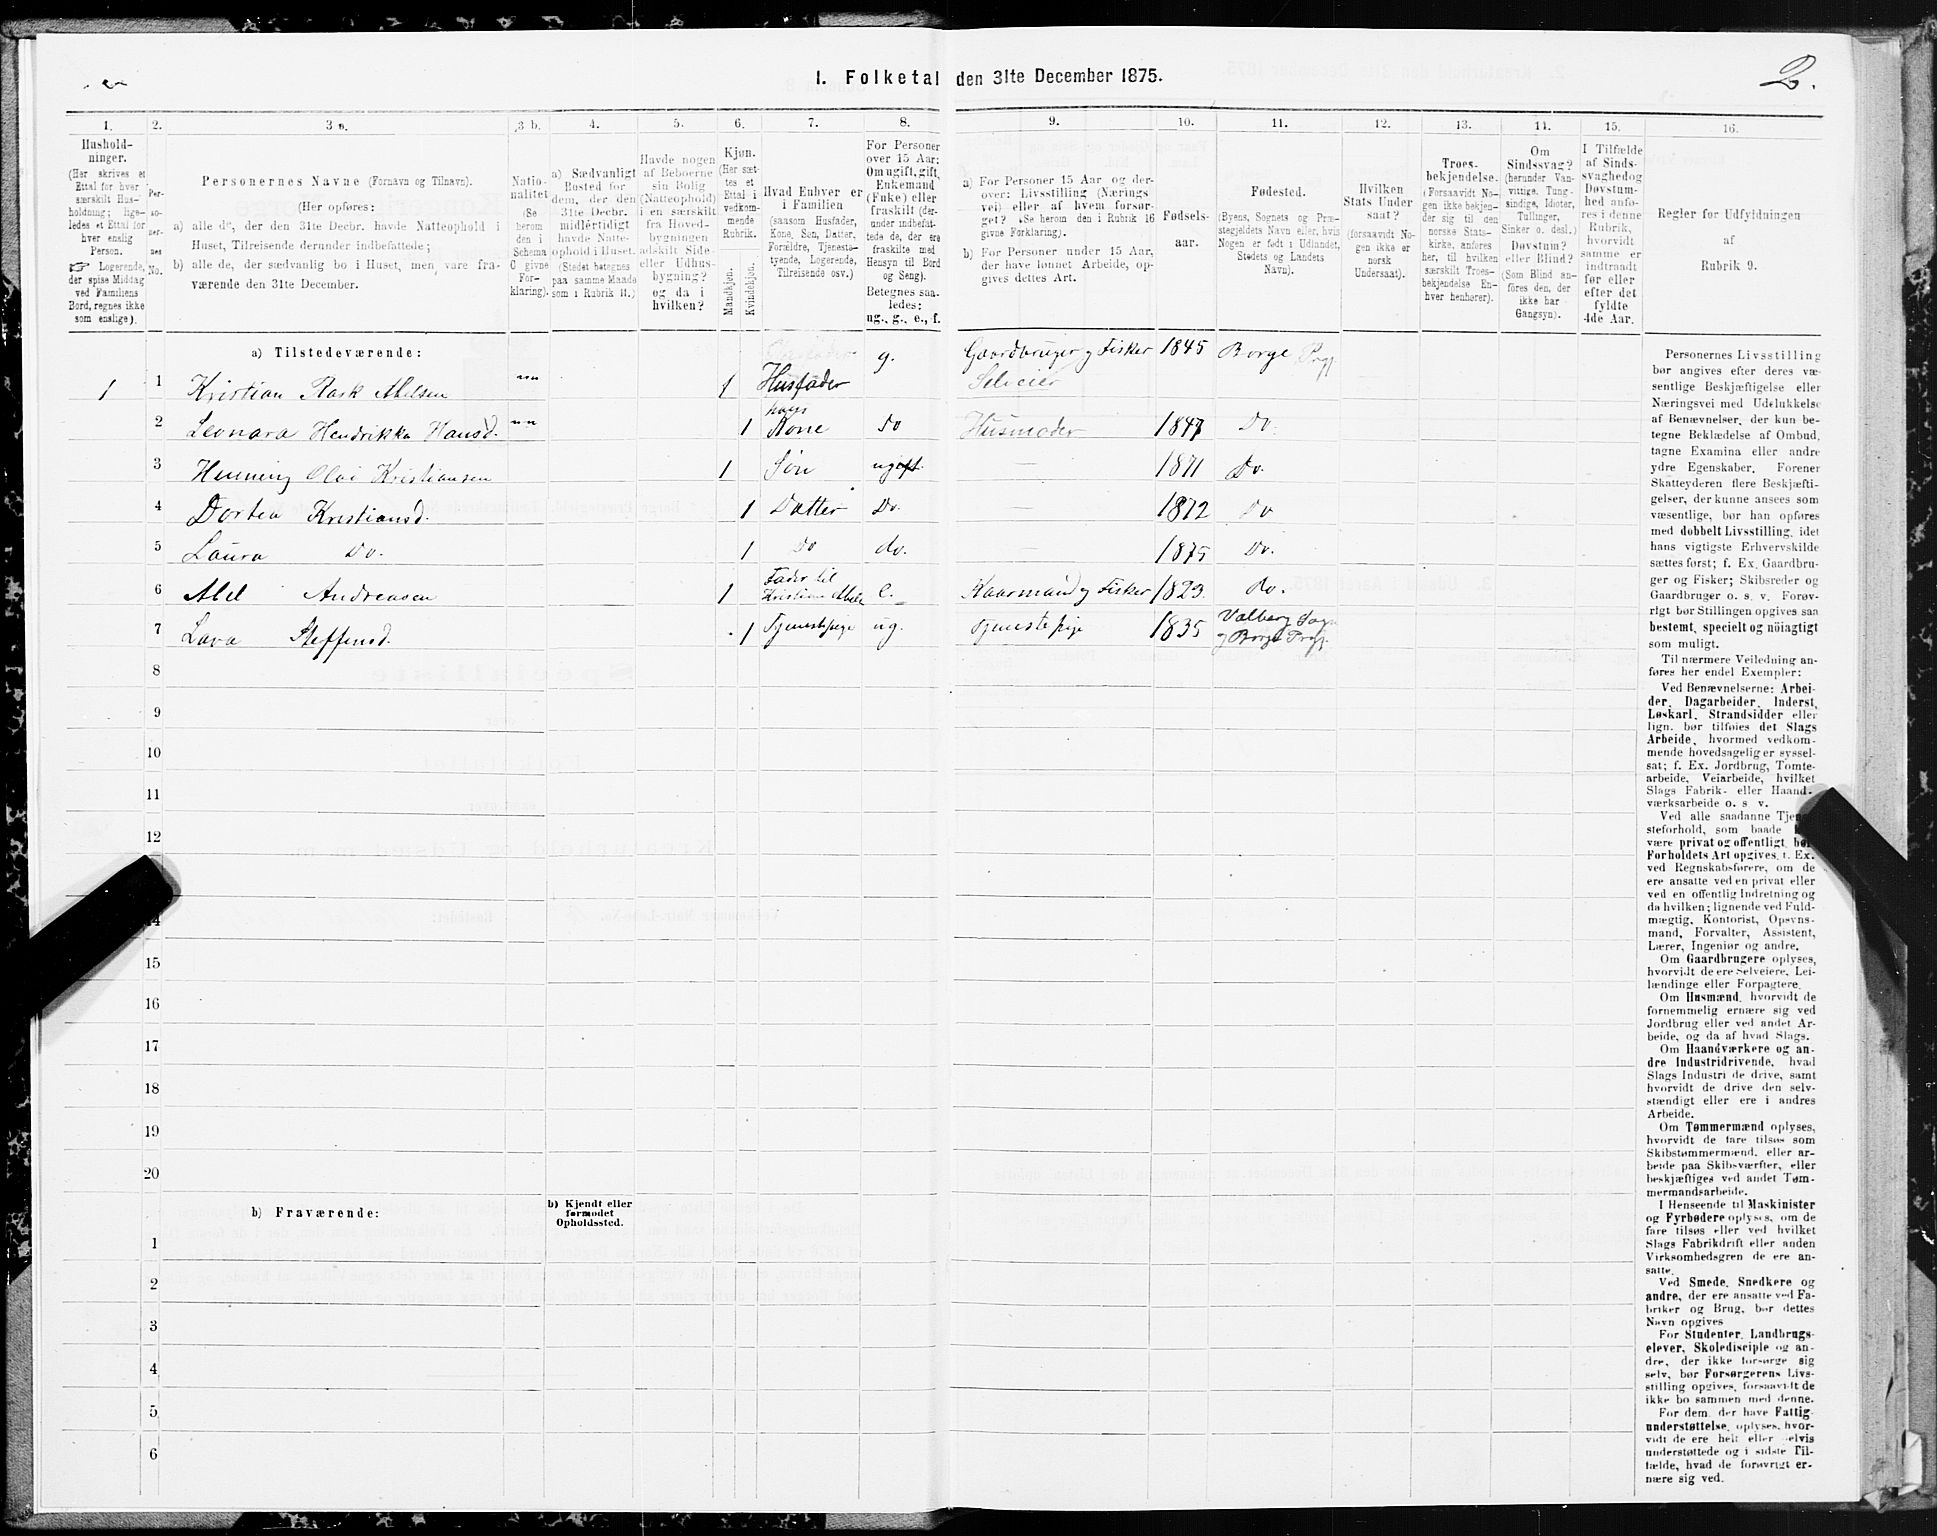 1. Folketal den 31te December 1875.
2.
1. 2. 3 a. 3 b. 4. 5. 6. 7. 8. 9. 10. 11. 12. 13. 14. 15. 16.
Hushold-
ninger.
(Her skrives et
Ettal for hver
særskilt Hus-
holdning; lige-
ledes et Ettal for
hver enslig
Person.
☞ Logerende,
der spise Middag
ved Familiens
Bord, regnes ikke
som enslige).
Per-
so-
ner-
nes
No.
Personernes Navne (Fornavn og Tilnavn).
(Her opføres:
a) alle de, der den 31te Decbr. havde Natteophold i
Huset, Tilreisende derunder indbefattede;
b) alle de, der sædvanlig bo i Huset, men vare fra-
værende den 31te December.
Natio-
nalitet
(Se
herom
den i
Schema
C givne
For-
klaring).
a) Sædvanligt
Bosted for
dem, der den
31te Decbr.
midlertidigt
havde Natte-
ophold i Huset.
(Stedet betegnes
paa samme Maade
som i Rubrik 11.)
Havde nogen
af Beboerne
sin Bolig
(Natteophold)
i en særskilt
fra Hoved-
bygningen
adskilt Side-
eller Udhus-
bygning?
og da i
hvilken?
Kjøn.
(Her sæt-
tes et
Ettal i
vedkom-
mende
Rubrik.
Mandkjøn.
Kvindekjøn.
Hvad Enhver er
i Familien
(saasom Husfader,
Kone, Søn, Datter,
Forældre, Tjenestø-
tyende, Logerende,
Tilreisende osv.)
For Personer
over 15 Aar:
Om ugift, gift,
Enkemand
(Enke) eller
fraskilt (der-
under indbefat-
tede de, der ere
fraskilte med
Hensyn til Bord
og Seng).
Betegnes saa-
ledes:
ug., g., e., f.
a) For Personer 15 Aar og der-
over: Livsstilling (Nærings-
vei) eller af hvem forsør-
get? (Se herom den i Rubrik 16
givne Forklaring).
b) For Personer under 15 Aar,
der have lønnet Arbeide, op-
gives dettes Art.
Fødsels-
aar.
Fødested.
(Byens, Sognets og Præ-
stegjeldets Navn eller, hvis
Nogen er født i Udlandet,
Stedets og Landets
Navn).
Hvilken
Stats Under
saat?
(forsaavidt No-
gen ikke er
norsk
Undersaat).
Troes-
bekjendelse.
(Forsaavidt No-
gen ikke bekjen-
der sig til den
norske Stats-
kirke, anføres
her, til hvilken
særskilt Troes-
bekjendelse En-
hver henhører).
Om
Sindssvag?
(herunder Van-
vittige, Tung-
sindige, Idioter,
Tullinger,
Sinker o. desl.)
Døvstum?
eller Blind?
(Som Blind an-
føres den, der
ikke har
Gangsyn).
I Tilfælde
af Sinds-
svaghed og
Døvstum-
hed anfø-
res i denne
Rubrik,
hvorvidt
samme er
indtraadt
før eller
efter det
fyldte
4de Aar.
Regler for Udfyldningen
af
Rubrik 9.
a) Tilstedeværende:
1 1 Kristian Rask Abelsen nn 1 Husfader g. Gaardbruger og Fisker Selveier 1845 Borge Prgj.
2 Leonara Hendrikka Hansd. nn 1 hans Kone do Husmoder 1847 Do.
3 Henning Olai Kristiansen 1 Søn ugift. — 1871 Do.
4 Dortea Kristiansd. 1 Datter Do. — 1872 Do
5 Laura Do. 1 Do do. — 1875 Do.
6 Abel Andreasen 1 Fader til Kristian Abels. e. Kaarmand og Fisker 1823. do.
7 Lava Steffensd. 1 Tjenestepige ug. Tjenestepige 1835 Valberg Sogn og Borge Prgj.
8
9
10
11
12
14
15
16
17
18
19
20
b) Fraværende:
b) Kjendt eller
formodet
Opholdssted.
1
2
3
4
5
6
Personernes Livsstilling
bør angives efter deres væ-
sentlige Beskjæftigelse eller
Næringsvei med Udelukkelse
af Benævnelser, der kun be-
tegne Beklædelse af Ombud,
tagne Examina eller andre
ydre Egenskaber. Forener
Skatteyderen flere Beskjæfti-
gelser, der kunne ansees som
væsentlige, bør han opføres
med dobbelt Livsstilling, idet
hans vigtigste Erhvervskilde
sættes først; f. Ex. Gaardbru-
ger og Fisker; Skibsreder og
Gaardbruger o. s. v. Forøv-
rigt bør Stillingen opgives saa
bestemt, specielt og nöiagtigt
som muligt.
Til nærmere Veiledning an-
føres her endel Exempler:
Ved Benævnelserne: Arbei-
der, Dagarbeider, Inderst,
Løskarl, Strandsidder eller
lign. bør tilføies det Slags
Arbeide, hvormed vedkom-
mende hovedsagelig er syssel-
sat; f. Ex. Jordbrug, Tomte-
arbeide, Veiarbeide, hvilket
Slags Fabrik- eller Haand-
værksarbeide o. s v.
Ved alle saadanne Tjene-
steforhold, som baade
være privat og offentligt, bør
Forholdets Art opgives, f. Ex.
ved Regnskabsførere, om de
ere ansatte ved en privat eller
ved en offentlig Indretning og
da hvilken; lignende ved Fuld-
mægtig, Kontorist, Opsyns-
mand, Forvalter, Assistent,
Lærer, Ingeniør og andre.
Om Gaardbrugere oplyses,
hvorvidt de ere Selveiere, Lei-
lændinge eller Forpagtere.
Om Husmænd, hvorvidt de
fornemmelig ernære sig ved
Jordbrug eller ved andet Ar-
beide, og da af hvad Slags.
Om Haandværkere og an-
dre Industridrivende, hvad
Slags Industri de drive, samt
hvorvidt de drive den selv-
stændigt eller ere i andres
Arbeide.
Om Tømmermænd oplyses,
hvorvidt de fare tilsøs som
Skibstømmermænd, eller ar-
beide paa Skibsværfter, eller
beskjæftiges ved andet Tøm-
mermandsarbeide.
I Henseende til Maskinister
og Fyrbødere oplyses, om de
fare tilsøs eller ved hvilket
Slags Fabrikdrift eller anden
Virksomhedsgren de ere an-
satte.
Ved Smede, Snedkere og
andre, der ere ansatte ved Fa-
briker og Brug, bør dettes
Navn opgives
For Studenter, Landbrugs-
elever, Skoledisciple og an-
dre, der ikke forsørge sig
selv, bør Forsørgerens Livs-
stilling opgives, forsaavidt de
ikke bo sammen med denne.
For dem, der have Fattig-
understøttelse, oplyses, hvor-
vidt de ere helt eller delvis
understøttede og i sidste Til-
fælde, hvad de forøvrigt er-
nære sig ved.